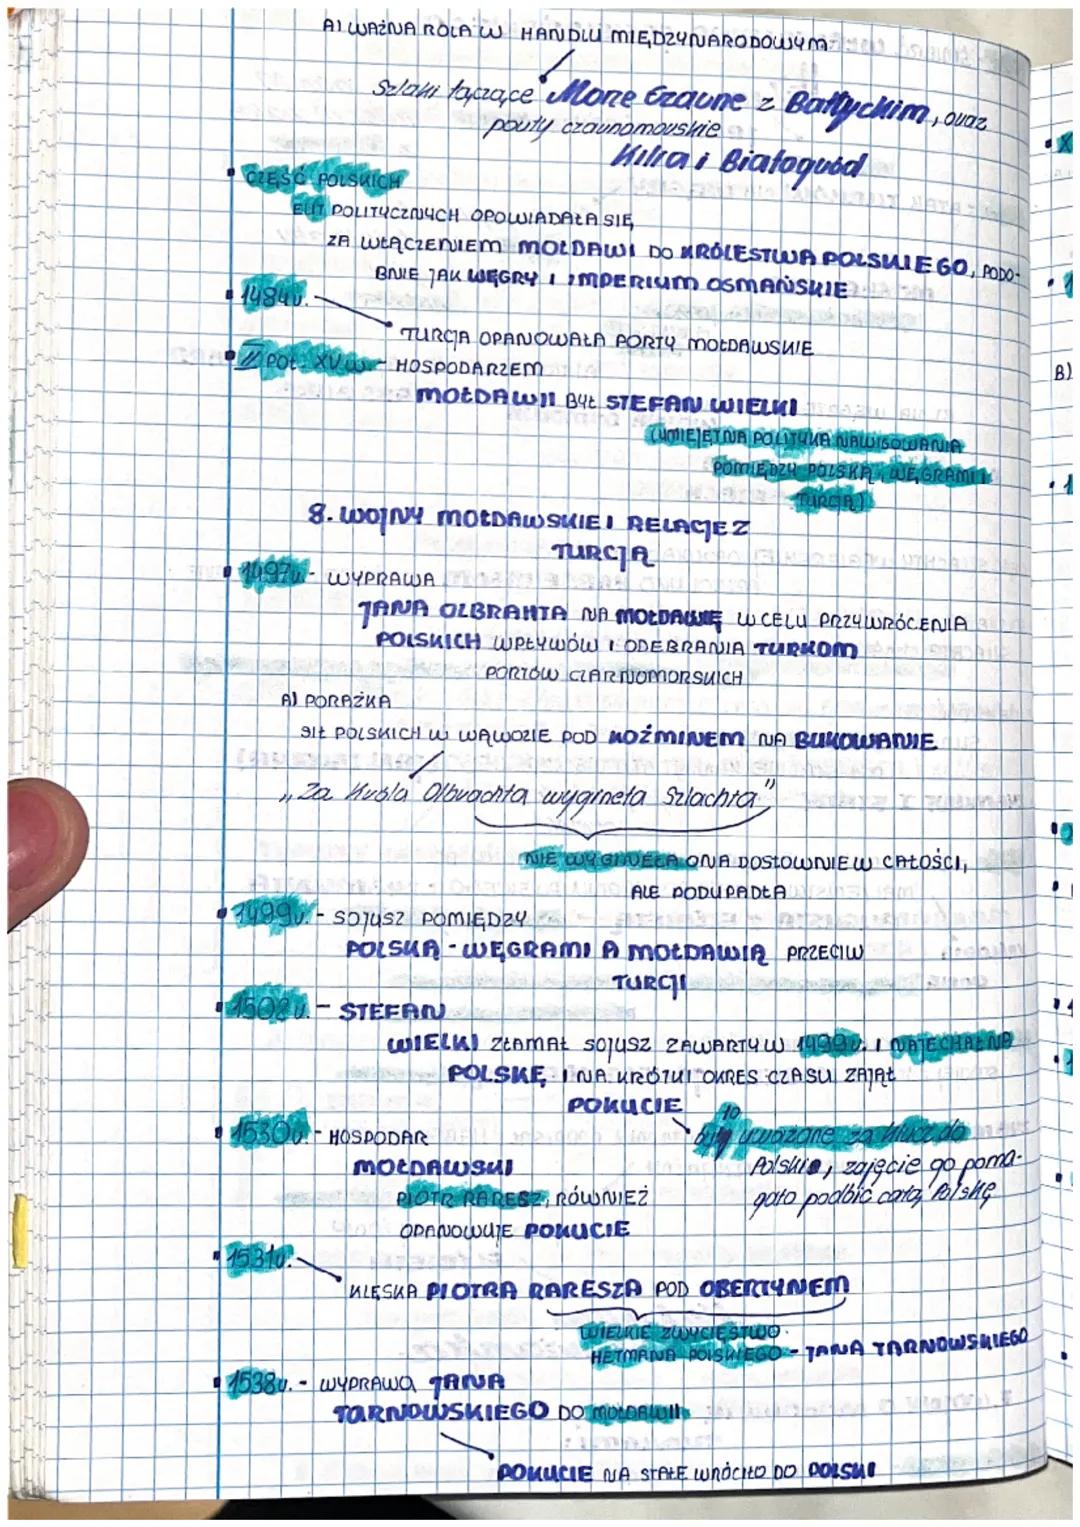 A) WAŻNA ROLA W HANDLU MIĘDZYNARODOWYM
Szlaki łączące Morze Czarne z Bałtyckim, oraz
porty czarnomorskie
Kilia i Białogród
CZĘŚĆ POLSKICH
ELIT POLITYCZNYCH OPOWIADAŁA SIĘ
ZA WŁĄCZENIEM MOŁDAWI DO KRÓLESTWA POLSKIEGO, PODO-
BNIE JAK WĘGRY I IMPERIUM OSMAŃSKIE
1484r.
TURCJA OPANOWAŁA PORTY MOŁDAWSKIE
II POŁ. XV w - HOSPODARZEM
MOŁDAWII BYŁ STEFAN WIELKI
(UMIEJĘTNA POLITYKA NAWISOWANIA
POMIĘDZY POLSKĄ, WĘGRAMI I
TURCJĄ)
8. WOJNY MOŁDAWSKIE I RELACJE Z
TURCJĄ
1497r. - WYPRAWA
JANA OLBRAHTA NA MOŁDAWIĘ W CELU PRZYWRÓCENIA
POLSKICH WPŁYWÓW I ODEBRANIA TURKOM
PORTÓW CZARNOMORSKICH
A) PORAŻKA
SIŁ POLSKICH W WĄWOZIE POD KOŹMINEM NA BUKOWANIE
„Za Króla Olbrachta wyginęła Szlachta"
NIE WYGINĘŁA ONA DOSŁOWNIE W CAŁOŚCI,
ALE PODUPADŁA
1499r. - SOJUSZ POMIĘDZY
POLSKĄ - WĘGRAMI A MOŁDAWIĄ PRZECIW
TURCJI
1502r. - STEFAN
WIELKI ZŁAMAŁ SOJUSZ ZAWARTY W 1499r. I NAJECHAŁ NA
POLSKĘ I NA KRÓTKI OKRES CZASU ZAJĄŁ
POKUCIE
1530r. - HOSPODAR
MOŁDAWSKI
PIOTR RARESZ, RÓWNIEŻ
OPANOWUJE POKUCIE
to
było uważane za klucz do
Polski, zajęcie go poma-
gało podbić całą Polskę
1531r.
KLĘSKA PIOTRA RARESZA POD OBERTYNEM
WIELKIE ZWYCIĘSTWO
HETMANA POLSKIEGO - JANA TARNOWSKIEGO
1538r. - WYPRAWA JANA
TARNOWSKIEGO DO MOŁDAWII
POKUCIE NA STAŁE WRÓCIŁO DO POLSKI
B)